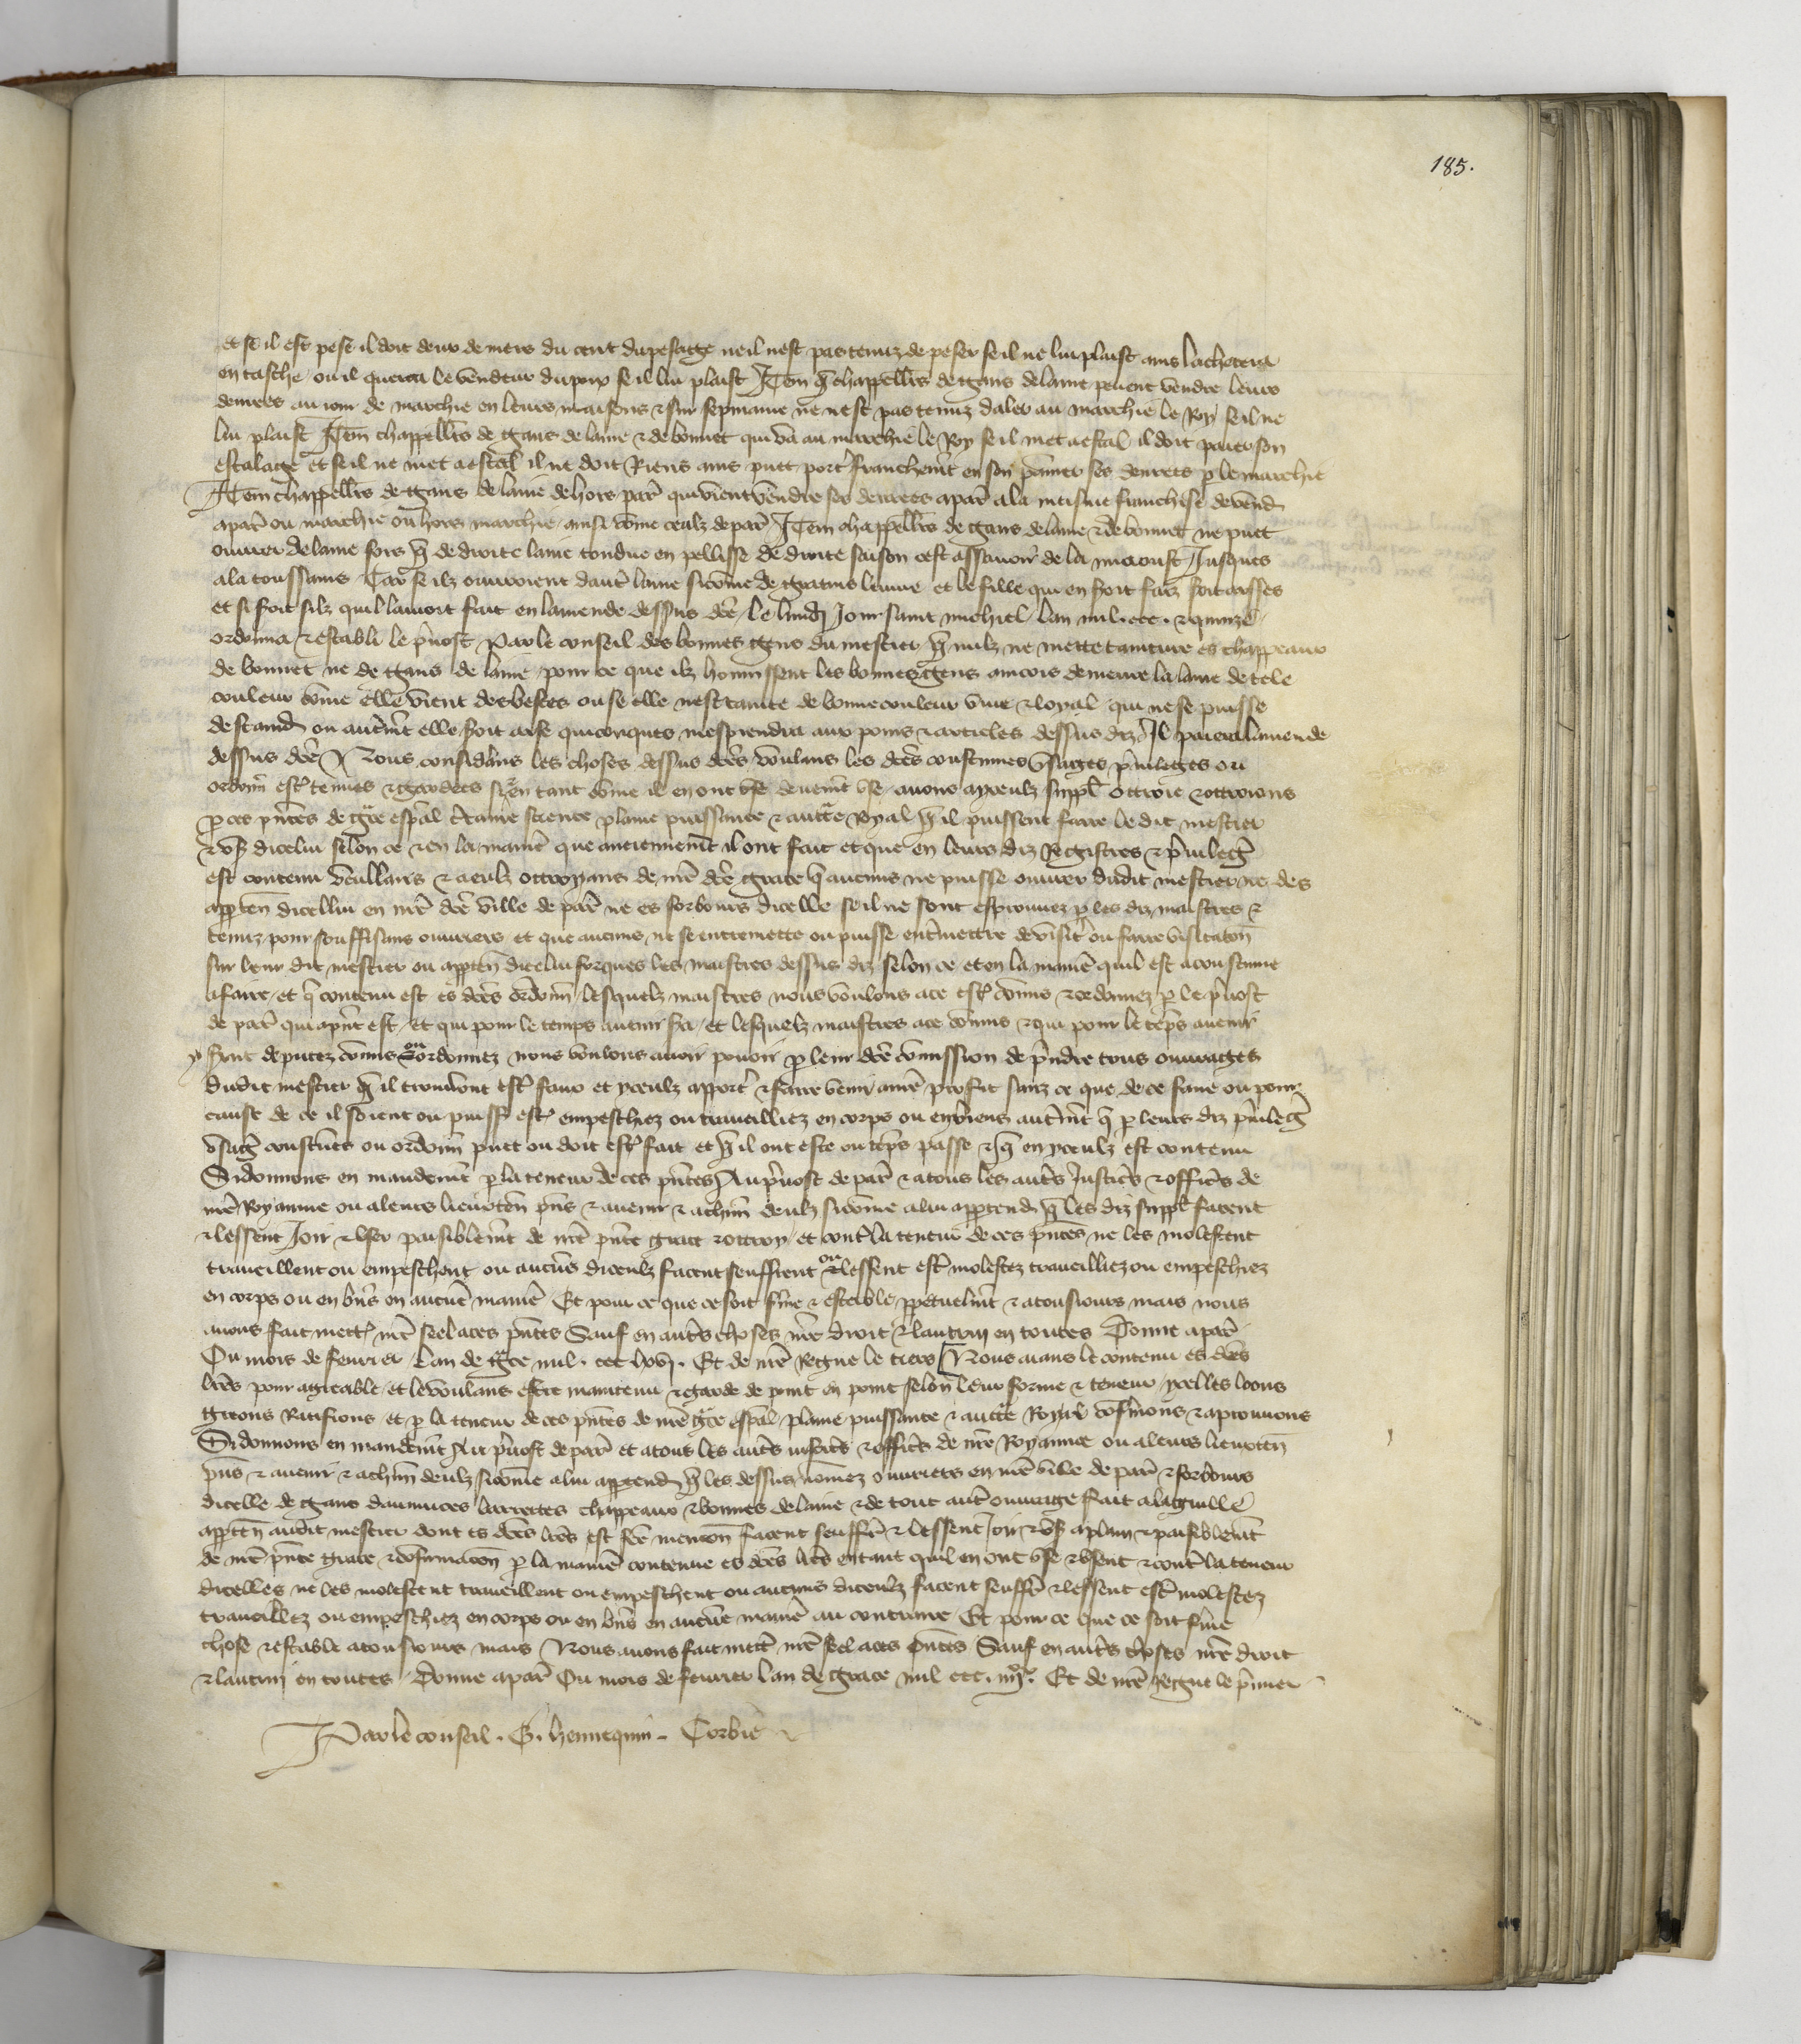 185.
et se il est pesé il doit deux deniers du cent du pesage ne il nest pas tenuz de peser se il ne lui plaist ains lachetera
en tasche ou il querra le vendeur du pois se il lui plaist Item q̃ chappell̃rs de gans de laine peuent vendre leurs
denrees au iour de marchie en leurs maisons & sur sepmaine ne nest pas tenuz daler au marchie le Roy se il ne
lui plaist Item chappell̃rs de gans de laine & de bonnet qui va au marchie le Roy se il met a estal il doit paier son
estalage et se il ne met a estal il ne doit Riens ains puet port̾ franchem̃t en son panier ses denrees ꝑ le marchie
Item chappell̃rs de gans de laine dehors par̃ qui vient vendre ses denrees a par̃ a la meisme franchise de vend̾
a par̃ ou marchie ou hors marchie ainsi cõme ceulz de par̃ Item chappell̃rs de gans de laine & de bonnet ne puet
ouvrer de laine fors q̃ de droite laine tondue en pellisse de droite saison cest assavoir de la miaoust Jusques
a la toussains Car se ilz ouvroient dautr̃ laine sicõme de gratins laine et le fille qui en soit faiz soit arses
et si soit silz quil lauoit fait en lamende dessus dc̃e / le lundj Jour saint michiel lan mil . ccc . & quinze
ordonna & establi le p̃uost Par le conseil des bonnes gens du mestier q̃ nulz ne mette tainture es chappeaux
de bonnet ne de gans de laine pour ce que ilz honnissent les bonnes gens aincois demeure la laine de tele
couleur cõme elle vient des bestes ou se elle nest tainte de bonne couleur vive & loyal qui ne se puisse
destaind̾ ou autrem̃t elle soit arse quiconques mesprendra aux poins & articles dessus diz Il paiera lamende
dessus dc̃e Nous considãns les choses dessus dc̃es voulans les dc̃es coustumes vsages p̃uileges ou
ordonñ estr̃ tenues & gardees si en tant cõme il en ont vsé deuem̃t vse auons a yceulz suppl̃ ottroie & ottroions
ꝑ ces p̃ntes de gr̃ce esp̃al c̃taine science plaine puissance & auct̃e Royal q̃ il puissent faire le dit mestier
& vser dicelui selon ce & en la manie᷑ que anciennem̃t il ont fait et que en leurs diz Registres & p̃uileg̃
est contenu & a eulz ottroyans de nr̃e dc̃e grace q̃ aucuns ne puisse ouvrer dudit mestier ne des
apꝑten dicellui en nr̃e dc̃e ville de par̃ ne es forbours dicelle se il ne sont esprouuez ꝑ les diz maistres &
tenuz pour souffisans ouuriers et que aucuns ne se entremette ou puisse ent̃mettre de visit̃ ou faire visitacõn
sur leur dit mestier ou appten̾ dicelui forques les maistres dessus diz selon ce et en la manie᷑ quil est acoustume
a faire et q̃ contenu est es dc̃es ordonñ / lesquelz maistres nous voulons a ce estr̃ cõmis & ordonnez ꝑ le p̃uost
de par̃ qui a p̃nt est et qui pour le temps auenir sera et lesquelz maistres a ce cõmis & qui pour le tẽps auenir
y seront deputez cõmis ou ordonnez nous voulons auoir pouoir ꝑ leur dc̃e cõmission de p̃ndre tous ouurages
dudit mestier q̃ il trouueront estr̃ faux et yceulz apport̾ & faire venir a nr̃e profit sanz ce que de ce faire ou pour
cause de ce il soient ou puiss̃ estr̃ empeschiez ou traueilliez en corps ou en biens autrem̃t q̃ ꝑ leurs diz p̃uileg̃
vsag̃ coustumes ou ordonñ puet ou doit estr̃ fait et q̃ il ont este ou tẽps passe & q̃ en yceulz est contenu
Si donnons en mandem̃t ꝑ la teneur de ces p̃ntes Au p̃uost de par̃ & a touz les autr̃s Justic̃rs & offic̃rs de
nr̃e Royaume ou a leurs lieuxten̾ p̃ns & auenir & a chũn deulz sicõme a lui appartend̾ q̃ les diz suppl̃ facent
& lessent Joir & vser paisiblem̃t de nr̃e p̃nte grace & ottroy / et contr̃ la teneur de ces p̃ntes ne les molestent
traueillent ou empeschent ou aucuns diceulz facent seuffrent ou lessent estr̃ molestez traueilliez ou empeschiez
en corps ou en biens en aucune manie᷑ Et pour ce que ce soit ferme & estable ꝑpetuelm̃t & a tousiours mais nous
auons fait mettr̃ nr̃e seel a ces p̃ntes Sauf en autr̃s choses nr̃e droit & lautruy en toutes Donne a par̃
Ou mois de feurier / Lan de gr̃ce mil . ccc lxvj . Et de nr̃e Regne le tiers Nous aians le contenu es dc̃es
lr̃es pour agreable et le voulans estre maintenu & garde de point en point selon leur forme & teneur ycelles loons
greons Ratifions et ꝑ la teneur de ces p̃ntes de nr̃e gr̃ce esp̃al plaine puissance & auct̃e Royal cõfermons & aprouuons
Si donnons en mandem̃t Au p̃uost de par̃ et a touz les autr̃s iustic̃rs & offic̃rs de nr̃e Royaume ou a leurs lieuxten̾
p̃ns & auenir & a chũn deulz sicõme a lui appartend̾ q̃ les dessus nõmez ouuriers en nr̃e ville de par̃ & forbours
dicelle de gans daumuces barretes chappeaux & bonnes de laine & de tout autr̃ ouurage fait a laguille
appten̾ audit mestier dont es dc̃es lr̃es est fc̃e mencõn facent seuffr̃ & lessent Joir & vser a plain & paisiblem̃t
de nr̃e p̃nte grace & cõfirmacõn ꝑ la manie᷑ contenue es dc̃es lr̃es en tant quil en ont vse & vsent & contr̃ la teneur
dicelles ne les molestent traueillent ou empeschent ou aucuns diceulz facent seuffr̃ & lessent estr̃ molestez
traueilliez ou empeschiez en corps ou en biens en aucune manie᷑ au contraire Et pour ce que ce soit ferme
chose & estable a tousiours mais Nous auons fait mettr̃ nr̃e seel a ces p̃ntes Sauf en autr̃s choses nr̃e droit
& lautruy en toutes Donne a par̃ Ou mois de feurier lan de grace mil ccc . iiijxx . Et de nr̃e Regne le p̃mier
Par le conseil . G . hennequin - Corbie